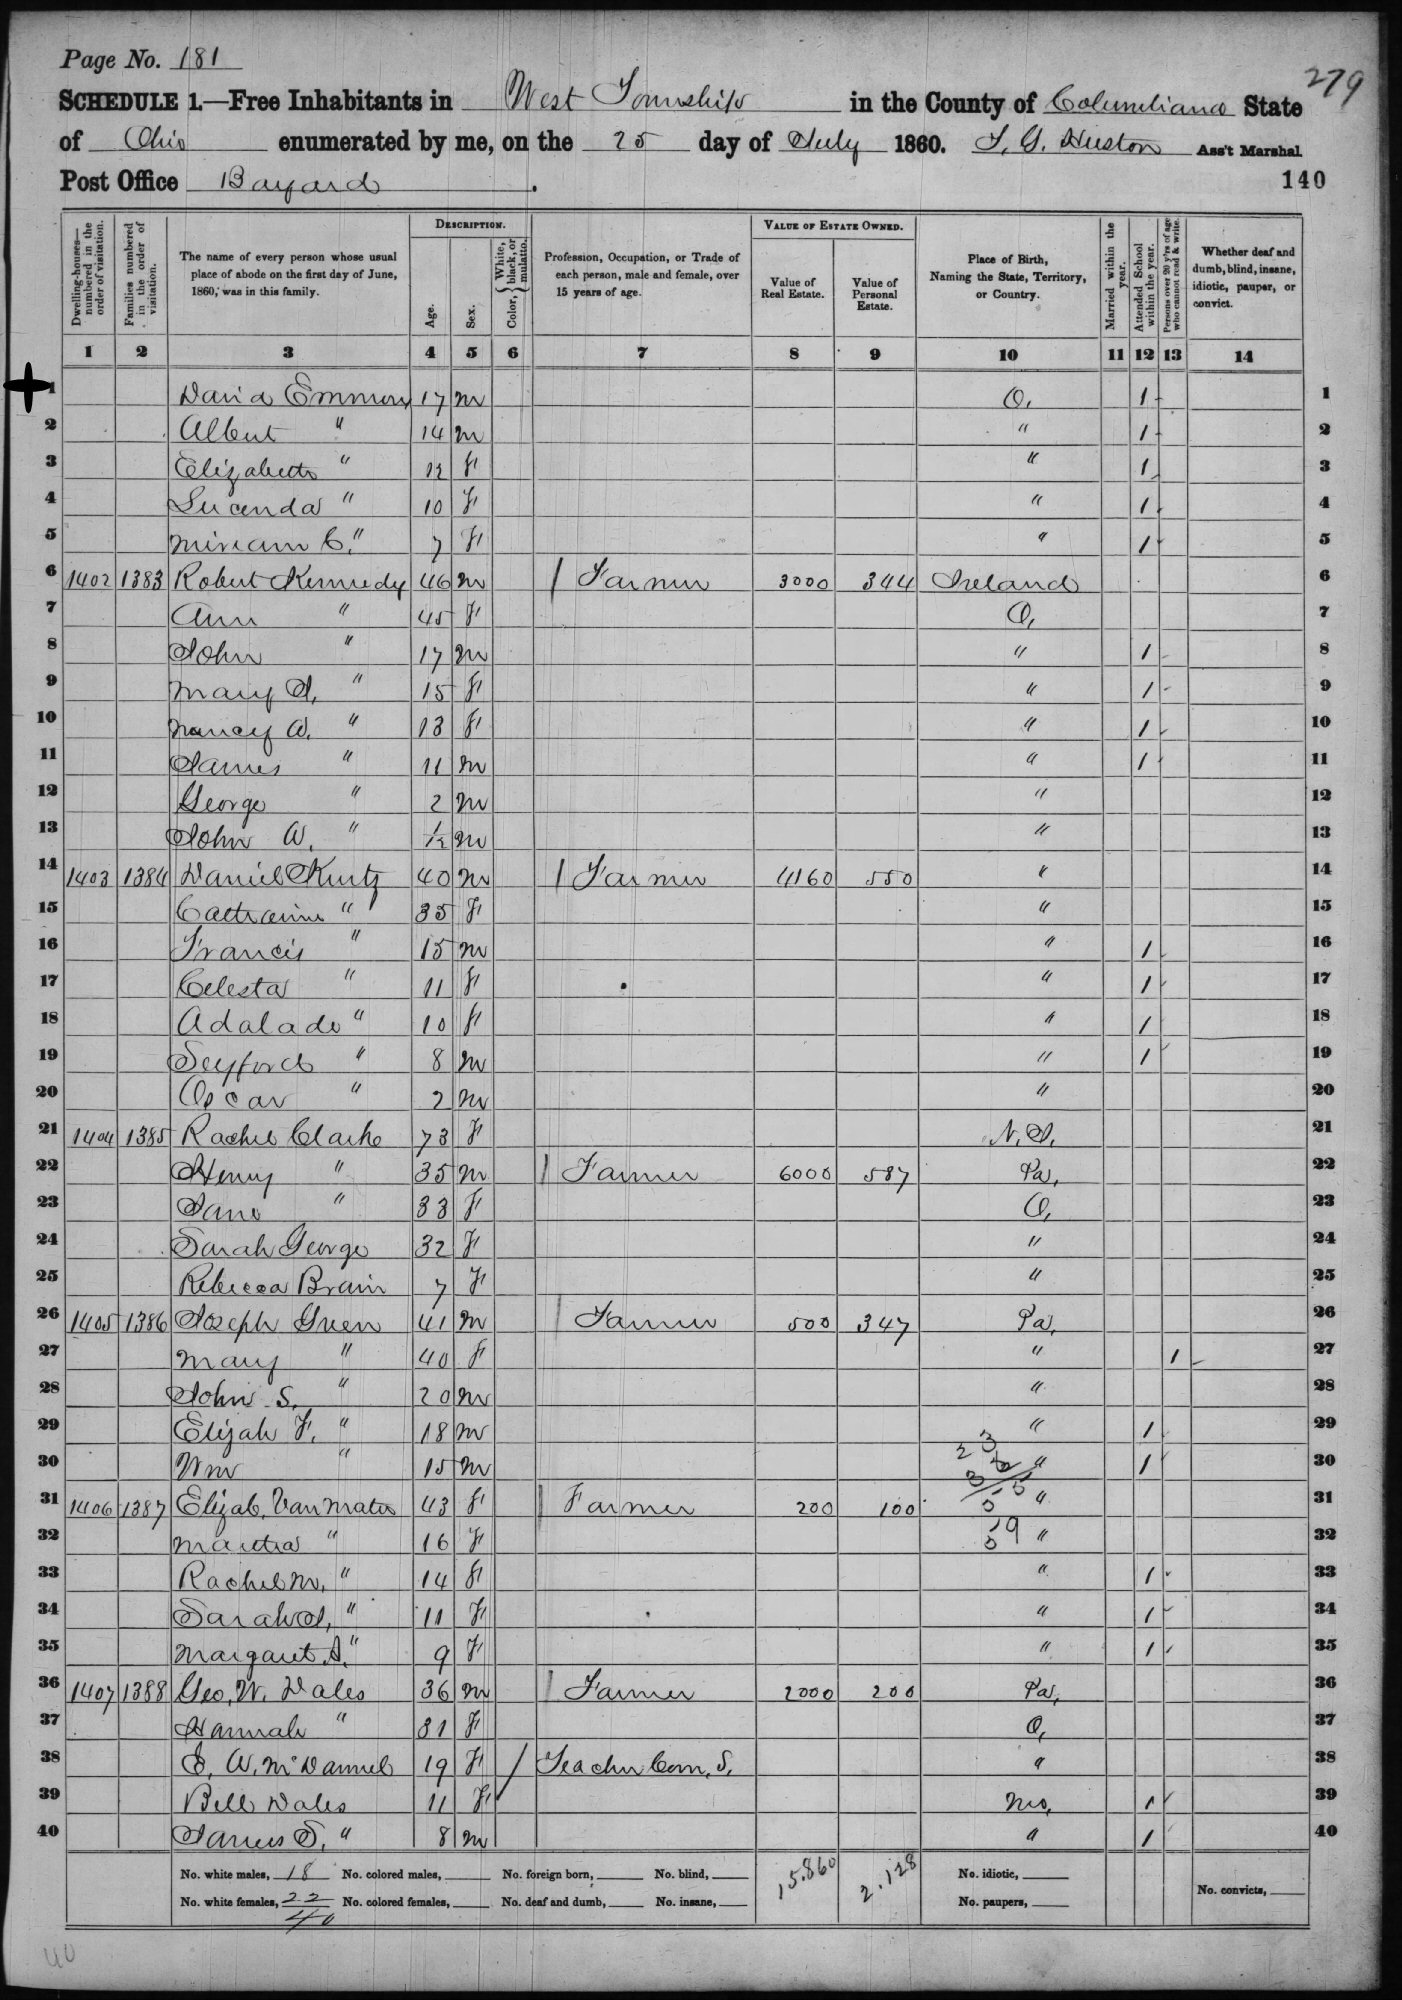 Page No. 181
279
SCHEDULE 1.—Free Inhabitants in West Township in the County of Columbiana State
of Ohio enumerated by me, on the 25 day of July 1860. T. G. Huston Ass't Marshal
Post Office Bayard . 140
Dwelling-houses—numbered in the order of visitation. Families numbered in the order of visitation. The name of every person whose usual place of abode on the first day of June, 1860, was in this family. DESCRIPTION. Age. Sex. Color, {White, black, or mulatto. Profession, Occupation, or Trade of each person, male and female, over 15 years of age. VALUE OF ESTATE OWNED. Value of Real Estate. Value of Personal Estate. Place of Birth, Naming the State, Territory, or Country. Married within the year. Attended School within the year. Persons over 20 y'rs of age who cannot read & write. Whether deaf and dumb, blind, insane, idiotic, pauper, or convict.
1 2 3 4 5 6 7 8 9 10 11 12 13 14
1 David Emmons 17 m O, 1 1
2 Albert " 14 m " 1 2
3 Elizabeth " 12 F " 1 3
4 Lucenda " 10 F " 1 4
5 Miriam C. " 7 F " 1 5
6 1402 1383 Robert Kennedy 46 m / Farmer 3000 344 Ireland 6
7 Ann " 45 F O, 7
8 John " 17 m " 1 8
9 Mary J, " 15 F " 1 9
10 Nancy A. " 13 F " 1 10
11 James " 11 m " 1 11
12 George " 2 m " 12
13 John W. " 1/12 m " 13
14 1403 1384 Daniel Kurtz 40 m / Farmer 4160 550 " 14
15 Catharine " 35 F " 15
16 Francis " 15 m " 1 16
17 Celesta " 11 F " 1 17
18 Adalade " 10 F " 1 18
19 Seyford " 8 m " 1 19
20 Oscar " 2 m " 20
21 1404 1385 Rachel Clarke 73 F N. J. 21
22 Henry " 35 m / Farmer 6000 587 Pa, 22
23 Jane " 33 F O, 23
24 Sarah George 32 F " 24
25 Rebecca Brain 7 F " 25
26 1405 1386 Joseph Green 41 m / Farmer 500 347 Pa, 26
27 Mary " 40 F " 1 27
28 John S. " 20 m " 28
29 Elijah F. " 18 m " 1 29
30 Wm " 15 m " 1 30
31 1406 1387 Elizab. Vanmater 43 F / Farmer 200 100 " 31
32 Martha " 16 F " 32
33 Rachel M. " 14 F " 1 33
34 Sarah J, " 11 F " 1 34
35 Margaret A. " 9 F " 1 35
36 1407 1388 Geo. W. Dales 36 m / Farmer 2000 200 Pa, 36
37 Hannah " 31 F O, 37
38 E. A. McDannel 19 F / Teacher Com. S. " 38
39 Bell Dales 11 F Mo, 1 39
40 James S. " 8 m " 1 40
No. white males, 18 No. colored males, No. foreign born, No. blind, 15.860 2.128 No. idiotic,
No. white females, 22 No. colored females, No. deaf and dumb, No. insane, No. paupers, No. convicts,
40
40